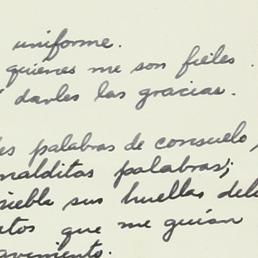 uniforme.
quienes me son fieles.
darles las gracias.
palabras de consuelo,
malditas palabras;
sus huellas
que me guían